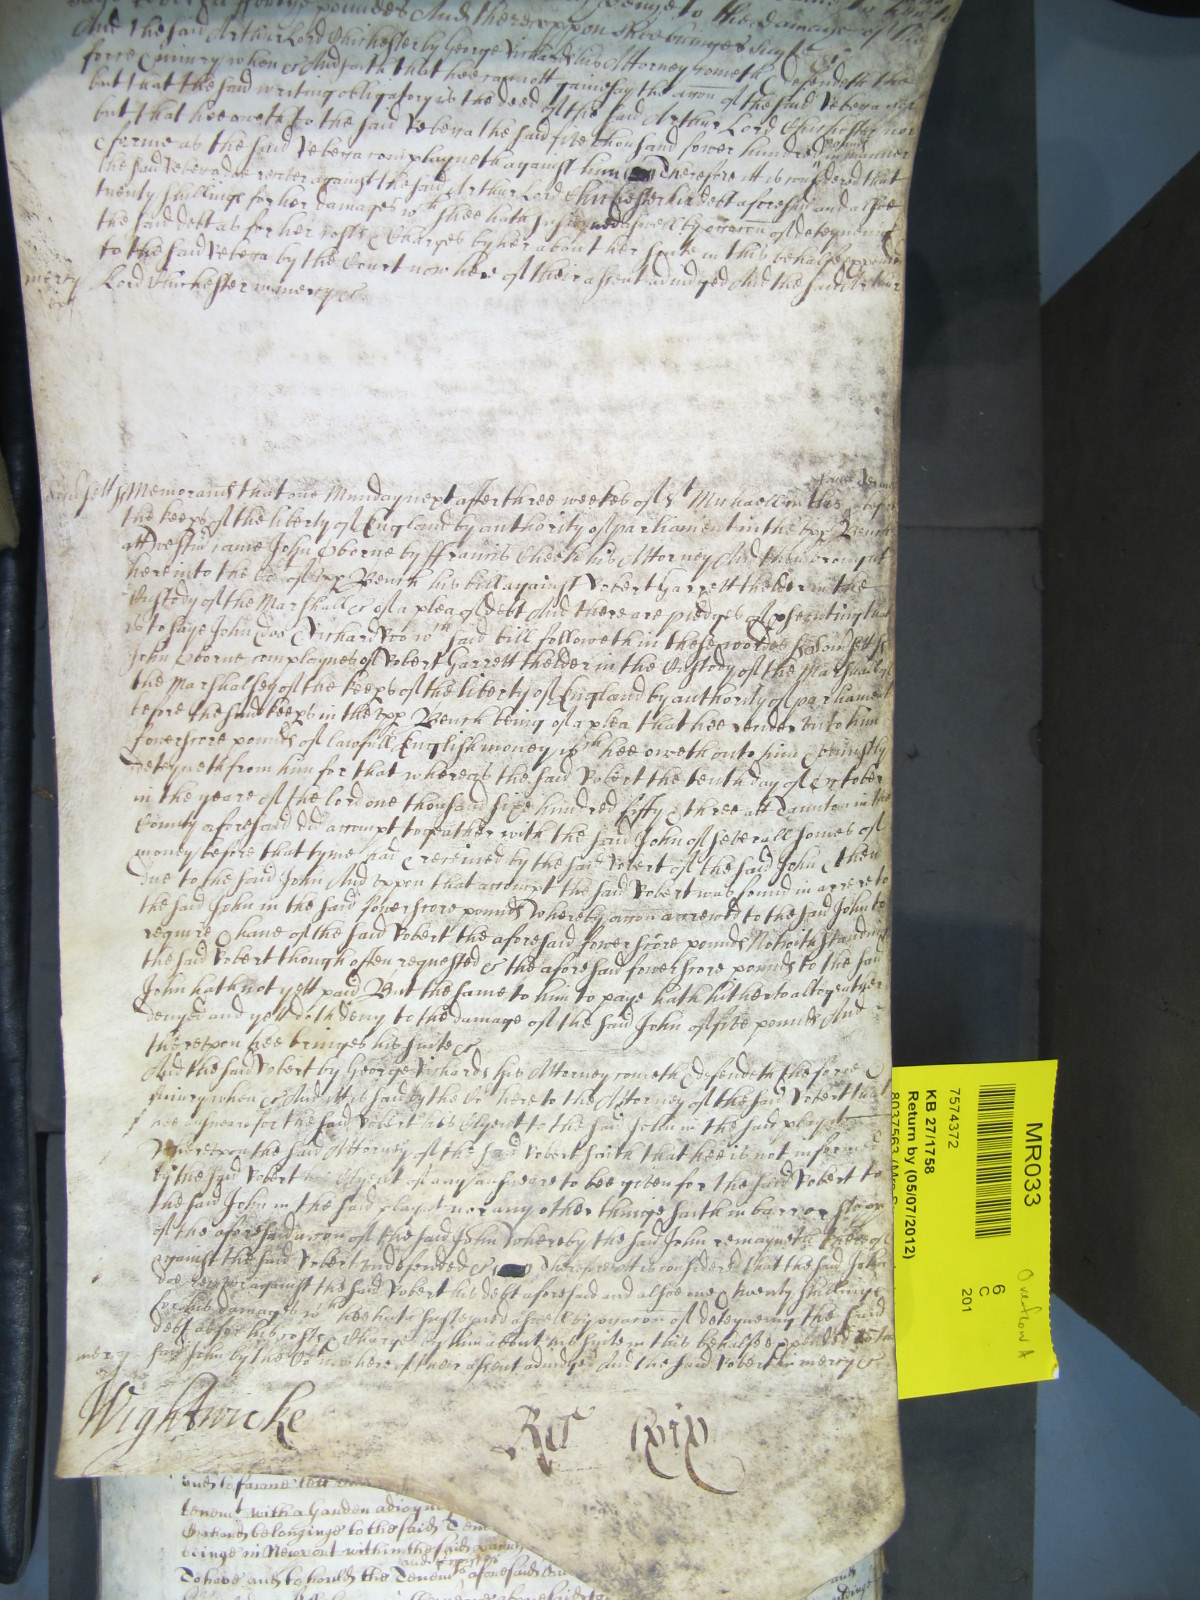 And the said Arthur Lord Chichester by George Vickards his Attorney cometh & defendeth the
force & iniury when &c And saith that hee cannott gainesay the accon of the said Rebecca nor
but that the said writing obligatory is the deed of the said Arthur Lord Chichester nor
but that hee oweth to the said Rebecca the said five thousand fower hundred pounds in manner
& forme as the said Rebecca complayneth against him Therefore it is considered that
the said Rebecca doe recover against the said Arthur Lord Chichester her debt aforesaid and alsoe
twenty shillings for her damages wch shee hath susteyned aswell by occacon of deteyneing
the said debt as for her costs & Charges by her about her suite in this behalfe expended
to the said Rebecca by the Court now here of their assent adiudged And the said Arthur
mercy Lord Chichester in mercy &c
Somsett ss Memorand that one Munday next after three weekes of St Michaell in this
the keeps of the liberty of England by authority of parliament in the upp Bench
att Westm came John Oborne by Ffrancis Cheeke his Attorney And then brought
here into the Co of upp Bench his bill against Robert Garrett thelder in the
Custody of the Marshall &c of a plea of debt And there are pledges of psecuting that
is to saye John Doe & Richard Roo wch said bill followeth in these wordes ss Somsett ss
John Oborne complaynes of Robert Garrett thelder in the Custody of the Marshall of
the Marshalsey of the keeps of the liberty of England by authority of parliament
before the said keeps in the upp Bench being of a plea that hee render unto him
fowerscore pounds of lawfull English money wch hee oweth unto him & uniustly
deteyneth from him for that whereas the said Robert the tenth day of October
in the yeare of the lord one thousand sixe hundred fiffty & three att Taunton in the
County aforesaid did accompt togeather with the said John of severall somes of
money before that tyme had & received by the said Robert of the said John & then
due to the said John And uppon that accompt the said Robert was found in arrere to
the said John in the said fowerscore pounds Whereby accon accrewed to the said John to
require & have of the said Robert the aforesaid fowerscore pounds Notwithstanding
the said Robert though often requested &c the aforesaid fowerscore pounds to the said
John hath not yett paid But the same to him to paye hath hitherto altogeather
denyed and yett doth deny to the damage of the said John of five pounds And
thereupon hee bringes his suite &c
And the said Robert by George Vickards his Attorney cometh & defendeth the force &
iniury when &c And itt is said by the Co here to the Attorney of the said Robert that
hee answere for the said Robert his Clyent to the said John in the said playnt
Whereupon the said Attorney of the said Robert saith that hee is not informed
by the said Robert his Clyent of any answeare to bee given for the said Robert to
the said John in the said playnt nor any other thinge saith in barr or stopp
of the aforesaid accon of the said John Whereby the said John remayneth thereof
against the said Robert undefended &c Therefore it is considered that the said John
doe recover against the said Robert his debt aforesaid and alsoe one & twenty shillings
for his damages wch hee hath susteyned aswell by occacon of deteyneing the said
debt as for his costs & Charges by him about his suite in this behalfe expended to the
mercy said John by the Co now here of their assent adiudged And the said Robert in mercy &c
Wightwicke
Ro
MR033
7574372
KB 27/1758
Return by (05/07/2012)
6
C
201
Overflow A
tenemt with a Garden adioyn
belonginge to the said Tenem
beinge in Newport within the said
To have and to hould the Tenemt aforesaid